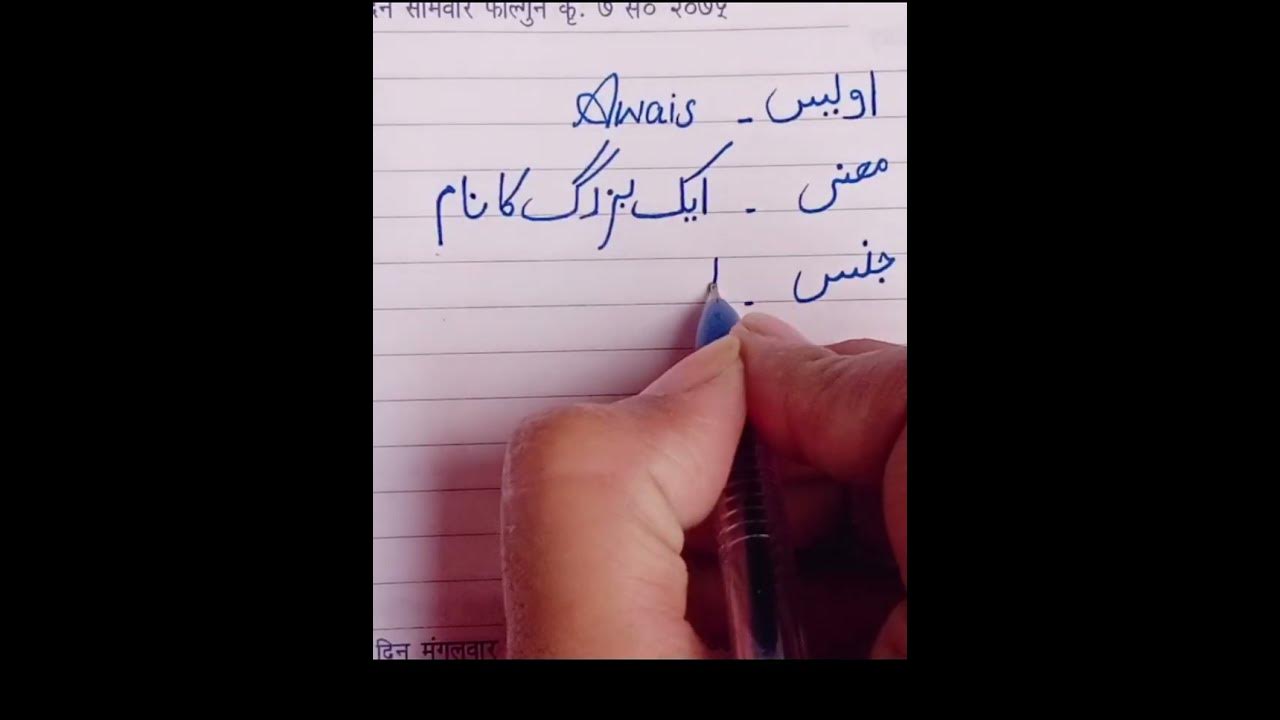 दिन सोमवार फाल्गुन कृ. ७ सं० २०७५
اویس - Awais
معنی - ایک بزرگ کا نام
جنس - ا
दिन मंगलवार